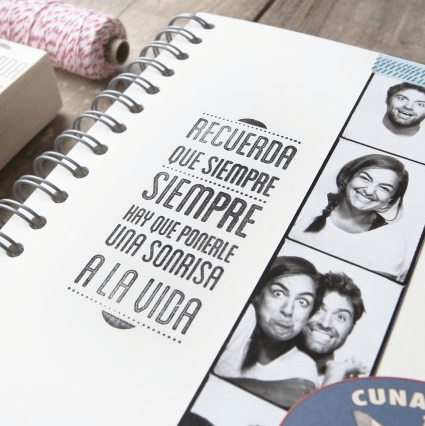 RECUERDA
QUE SIEMPRE
SIEMPRE
HAY QUE PONERLE
UNA SONRISA
A LA VIDA
CUNA